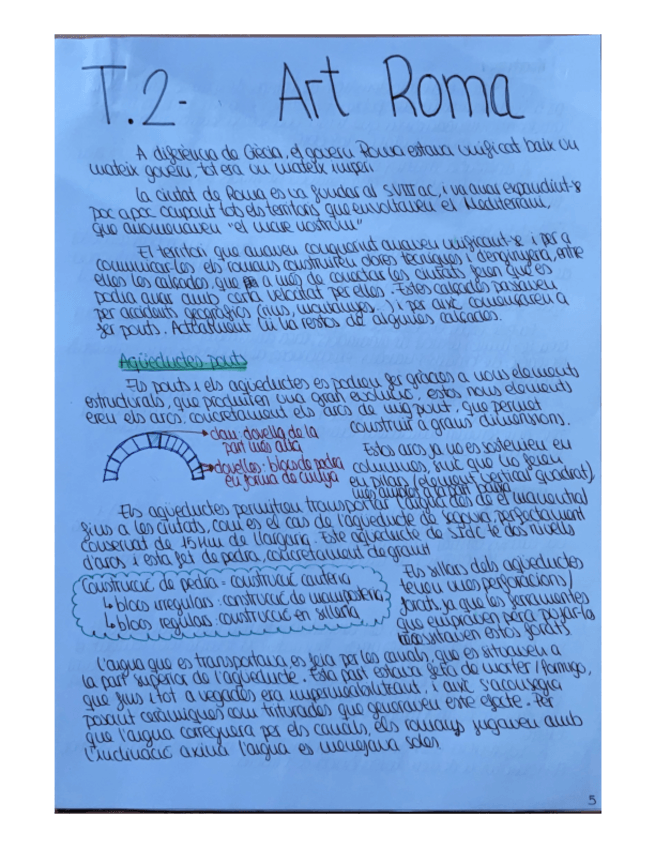 T.2- Art Roma
A diferència de Grècia, el govern Roma estava unificat baix un
mateix govern, tot era un mateix imperi.
La ciutat de Roma es va fundar al SVIII aC, i va anar expandint-se
poc a poc ocupant tots els territoris que envoltaven el Mediterrani,
que anomenaven "el mare nostrum"
El territori que anaven conquerint anaven unificant-se i per a
comunicar-los els romans construiren obres tècniques i d'enginyeria, entre
elles les calçades, que a més de conectar les ciutats feien que es
podia anar amb certa velocitat per elles. Estes calçades passaven
per accidents geogràfics (rius, muntanyes...) i per això començaren a
fer ponts. Actualment hi ha restos de algunes calçades.
Aqüeductes ponts
Els ponts i els aqüeductes es podien fer gràcies a nous elements
estructurals, que produïren una gran evolució, estos nous elements
eren els arcs, concretament els arcs de mig punt, que permet
construir a grans dimensions.
clau: dovella de la
part més alta
dovelles: blocs de pedra
en forma de cunya
Estos arcs ja no es sostenien en
columnes, sinó que ho feien
en pilars (element vertical quadrat),
més amplat a la part
Els aqüeductes permitien transportar l'aigua des de el manantial
fins a les ciutats, com es el cas de l'aqüeducte de Segovia, perfectament
conservat de 15 Km de llargària. Este aqüeducte de SIdC té dos nivells
d'arcs i està fet de pedra, concretament de granit
Construcció de pedra = construcció canteria
↳ blocs irregulars: construcció de mamposteria
↳ blocs regulars: construcció en silleria
Els sillars dels aqüeductes
tenen unes perforacions/
forats, ja que les ferramentes
que empraven per a pujar-la
necessitaven estos forats
L'aigua que es transportava es feia per les canals, que es situaven a
la part superior de l'aqüeducte. Esta part estava feta de morter/formigó,
que fins i tot a vegades era impermeabilitzant, i això s'aconseguia
posant ceràmiques com triturades que generaven este efecte. Per
que l'aigua correguera per els canals, els romans jugaven amb
l'inclinació axina l'aigua es menejava soles
5